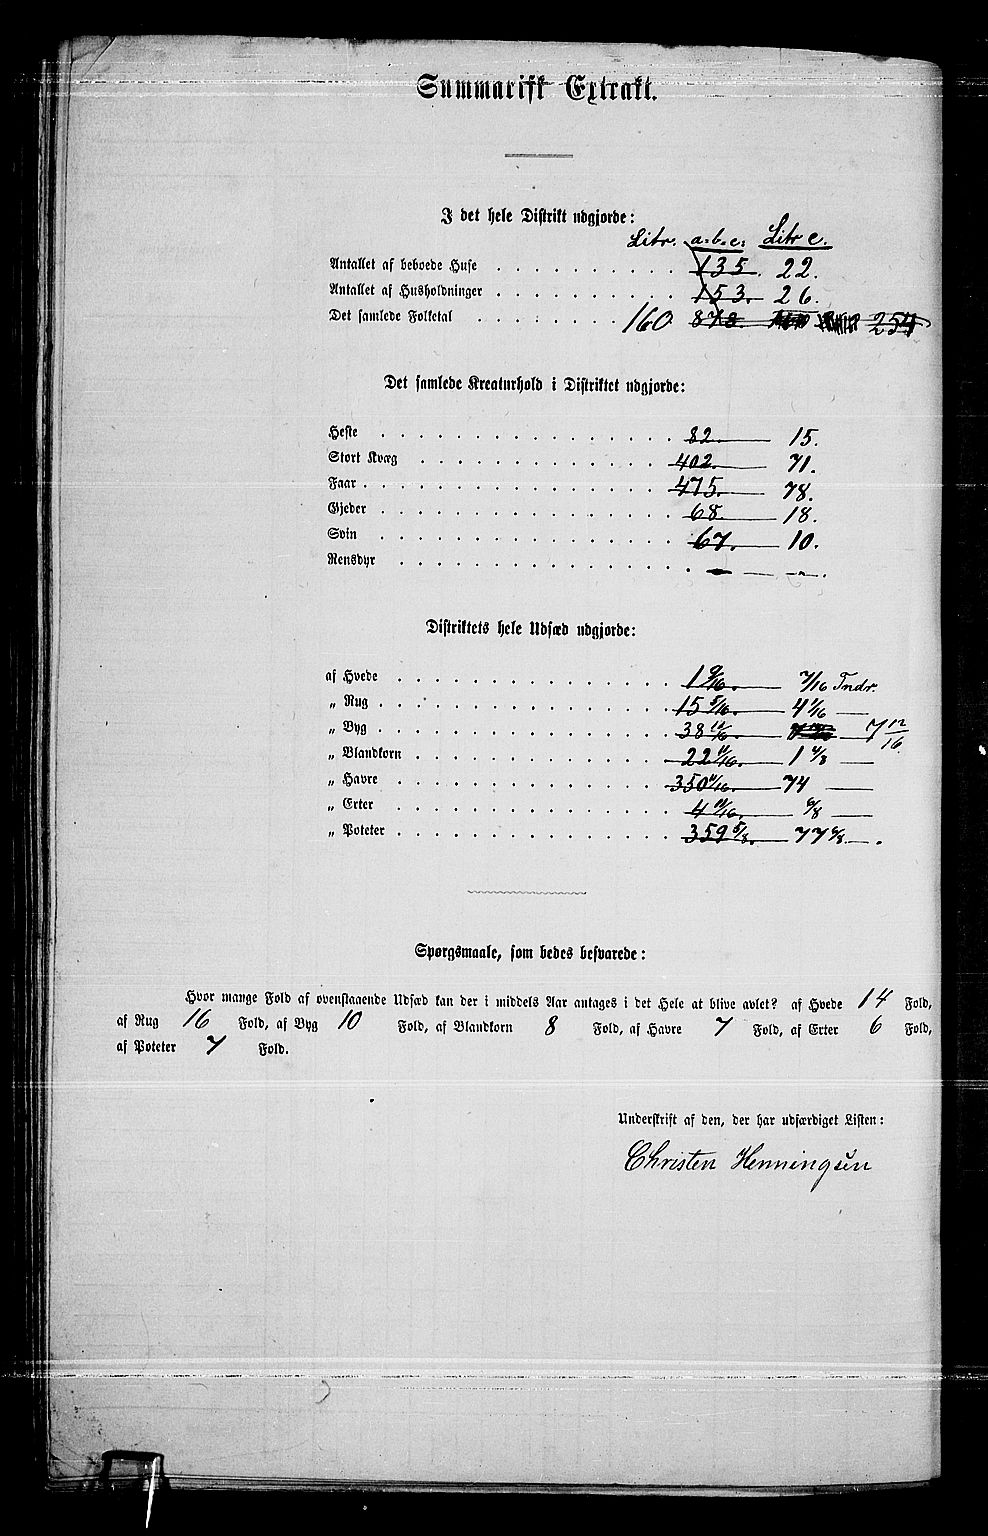 Summarisk Extrakt.
I det hele Distrikt udgjorde:
Litr. a. b. c: Litr c.
Antallet af beboede Huse . . . . 135. 22.
Antallet af Husholdninger . . . . 153. 26.
Det samlede Folketal . . . . 160 878 254
Det samlede Kreaturhold i Distriktet udgjorde:
Heste . . . . 82. 15.
Stort Kvæg . . . . 402. 71.
Faar . . . . 475. 78.
Gjeder . . . . 68. 18.
Svin . . . . 67. 10.
Rensdyr . . . . — — „ .
Distriktets hele Udsæd udgjorde:
af Hvede . . . . 1 9/16. 7/16 Tndr.
„ Rug . . . . 15 5/16. 4 1/16 —
„ Byg . . . . 38 11/16 7 12/16.
„ Blandkorn . . . . 22 11/16. 1 4/8 —
„ Havre . . . . 350 4/16. 74 —
„ Erter . . . . 4 10/16. 6/8 —
„ Poteter . . . . 359 5/8. 77 4/8 — .
Spørgsmaale, som bedes besvarede:
Hvor mange Fold af ovenstaaende Udsæd kan der i middels Aar antages i det Hele at blive avlet? af Hvede 14 Fold,
af Rug 16 Fold, af Byg 10 Fold, af Blandkorn 8 Fold, af Havre 7 Fold, af Erter 6 Fold,
af Poteter 7 Fold.
Underskrift af den, der har udfærdiget Listen:
Christen Henningsen